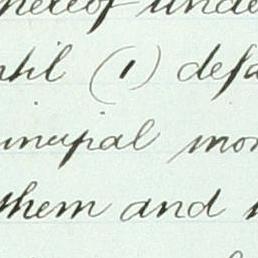 thereof unde
ntil (1) defa
incipal mon
them and